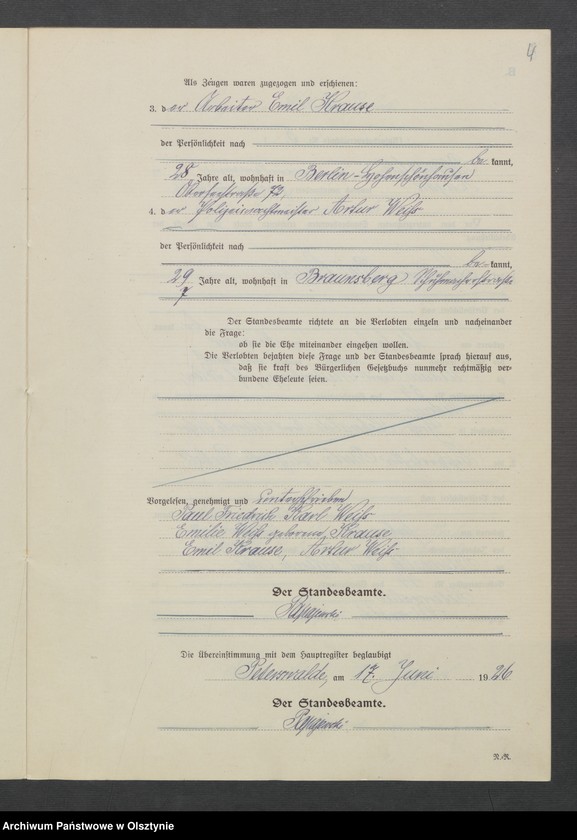 4
Als Zeugen waren zugezogen und erschienen:
3. der Arbeiter Emil Krause
der Persönlichkeit nach
be kannt,
28 Jahre alt, wohnhaft in Berlin-Hohenschönhausen
Oberseestraße 73,
4. der Polizeiwachtmeister Artur Weiß
der Persönlichkeit nach
be kannt,
29 Jahre alt, wohnhaft in Braunsberg Schuhmacherstraße
7
Der Standesbeamte richtete an die Verlobten einzeln und nacheinander
die Frage:
ob sie die Ehe miteinander eingehen wollen.
Die Verlobten bejahten diese Frage und der Standesbeamte sprach hierauf aus,
daß sie kraft des Bürgerlichen Gesetzbuchs nunmehr rechtmäßig ver-
bundene Eheleute seien.
Vorgelesen, genehmigt und unterschrieben
Paul Friedrich Karl Weiß
Emilie Weiß geborene Krause
Emil Krause, Artur Weiß
Der Standesbeamte.
Die Übereinstimmung mit dem Hauptregister beglaubigt
Peterswalde, am 17. Juni 1926
Der Standesbeamte.
N.-R.
Archiwum Państwowe w Olsztynie